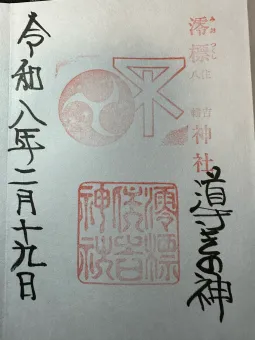 澪標
住吉
神社
導きの神
澪標
住吉
神社
令和八年二月十九日